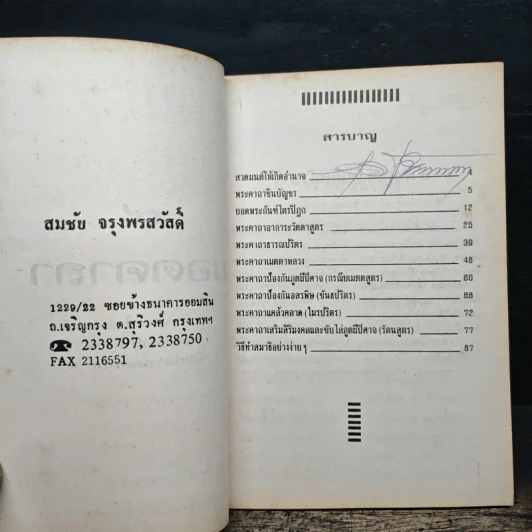 สมชัย จรุงพรสวัสดิ์
1229/22 ซอยข้างธนาคารออมสิน
ถ.เจริญกรุง ต.สุริวงศ์ กรุงเทพฯ
☎ 2338797, 2338750
FAX 2116551
สารบาญ
สวดมนต์ให้เกิดอำนาจ 4
พระคาถาชินบัญชร 5
ยอดพระกัณฑ์ไตรปิฎก 12
พระคาถาอาการะวัตตาสูตร 25
พระคาถาธารณปริตร 39
พระคาถาเมตตาหลวง 48
พระคาถาป้องกันภูตผีปีศาจ (กรณียเมตตสูตร)
พระคาถาป้องกันอสรพิษ (ขันธปริตร)
พระคาถาแคล้วคลาด (โมรปริตร) 72
พระคาถาเสริมสิริมงคลและขับไล่ภูตผีปีศาจ (รัตนสูตร) 77
วิธีทำสมาธิอย่างง่าย ๆ 87